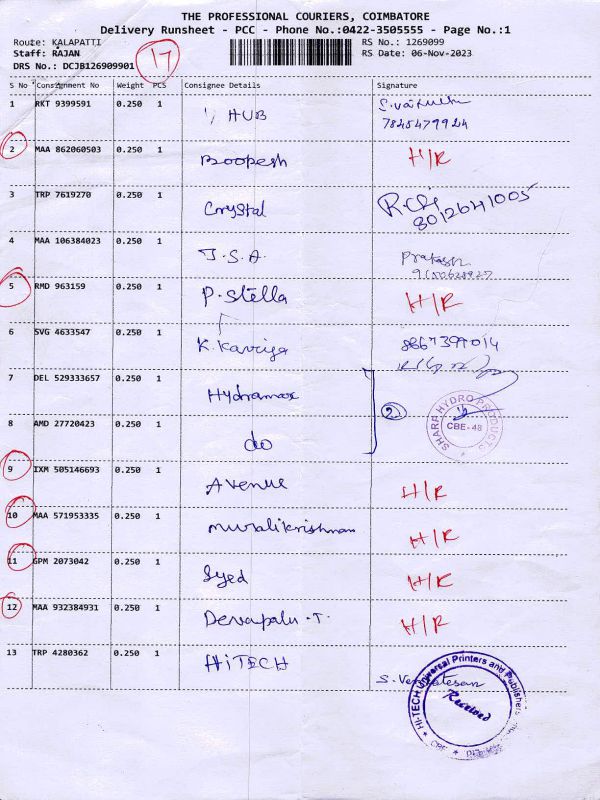 THE PROFESSIONAL COURIERS, COIMBATORE
Delivery Runsheet - PCC - Phone No.:0422-3505555 - Page No.:1
Route: KALAPATTI RS No.: 1269099
Staff: RAJAN RS Date: 06-Nov-2023
DRS No.: DCJB126909901 17
S No Consignment No Weight PCS Consignee Details Signature
1 RKT 9399591 0.250 1 HUB
7845479924
2 MAA 862060503 0.250 1 Boopesh H/R
3 TRP 7619270 0.250 1 Crystal 8012641005
4 MAA 106384023 0.250 1 J.S.A. Prakash
5 RMD 963159 0.250 1 P.Stella H/R
6 SVG 4633547 0.250 1 K.Kaviya 8667399014
7 DEL 529333657 0.250 1 Hydramax 2
8 AMD 27720423 0.250 1 do SHARP HYDRO PRODUCTS CBE-48
9 IXM 505146693 0.250 1 Avenue H/R
10 MAA 571953335 0.250 1 muralikrishnan H/R
11 GPM 2073042 0.250 1 Syed H/R
12 MAA 932384931 0.250 1 Devapalu.T. H/R
13 TRP 4280362 0.250 1 HiTECH S.Venkatesan
HI-TECH Universal Printers and Publishers
Received
CBE